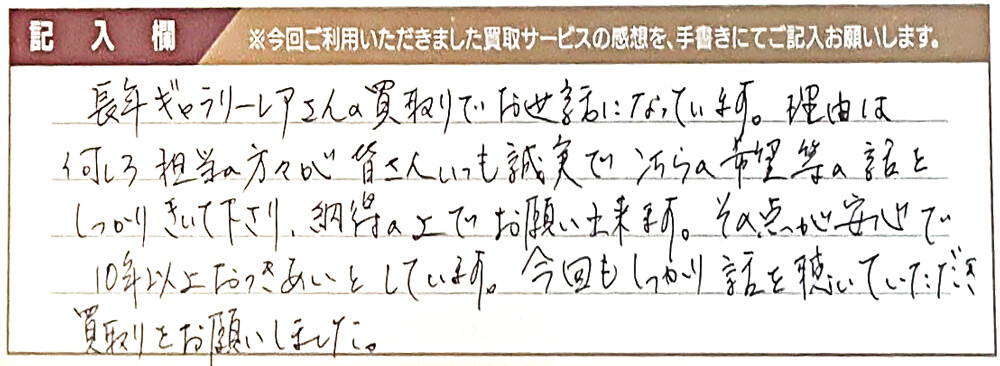 記入欄 ※今回ご利用いただきました買取サービスの感想を、手書きにてご記入お願いします。
長年ギャラリーレアさんの買取りでお世話になっています。理由は
何しろ担当の方々が皆さんいつも誠実でこちらの希望等の話を
しっかりきいて下さり、納得の上でお願い出来ます。その点が安心で
10年以上おつきあいをしています。今回もしっかり話を聴いていただき
買取りをお願いしました。